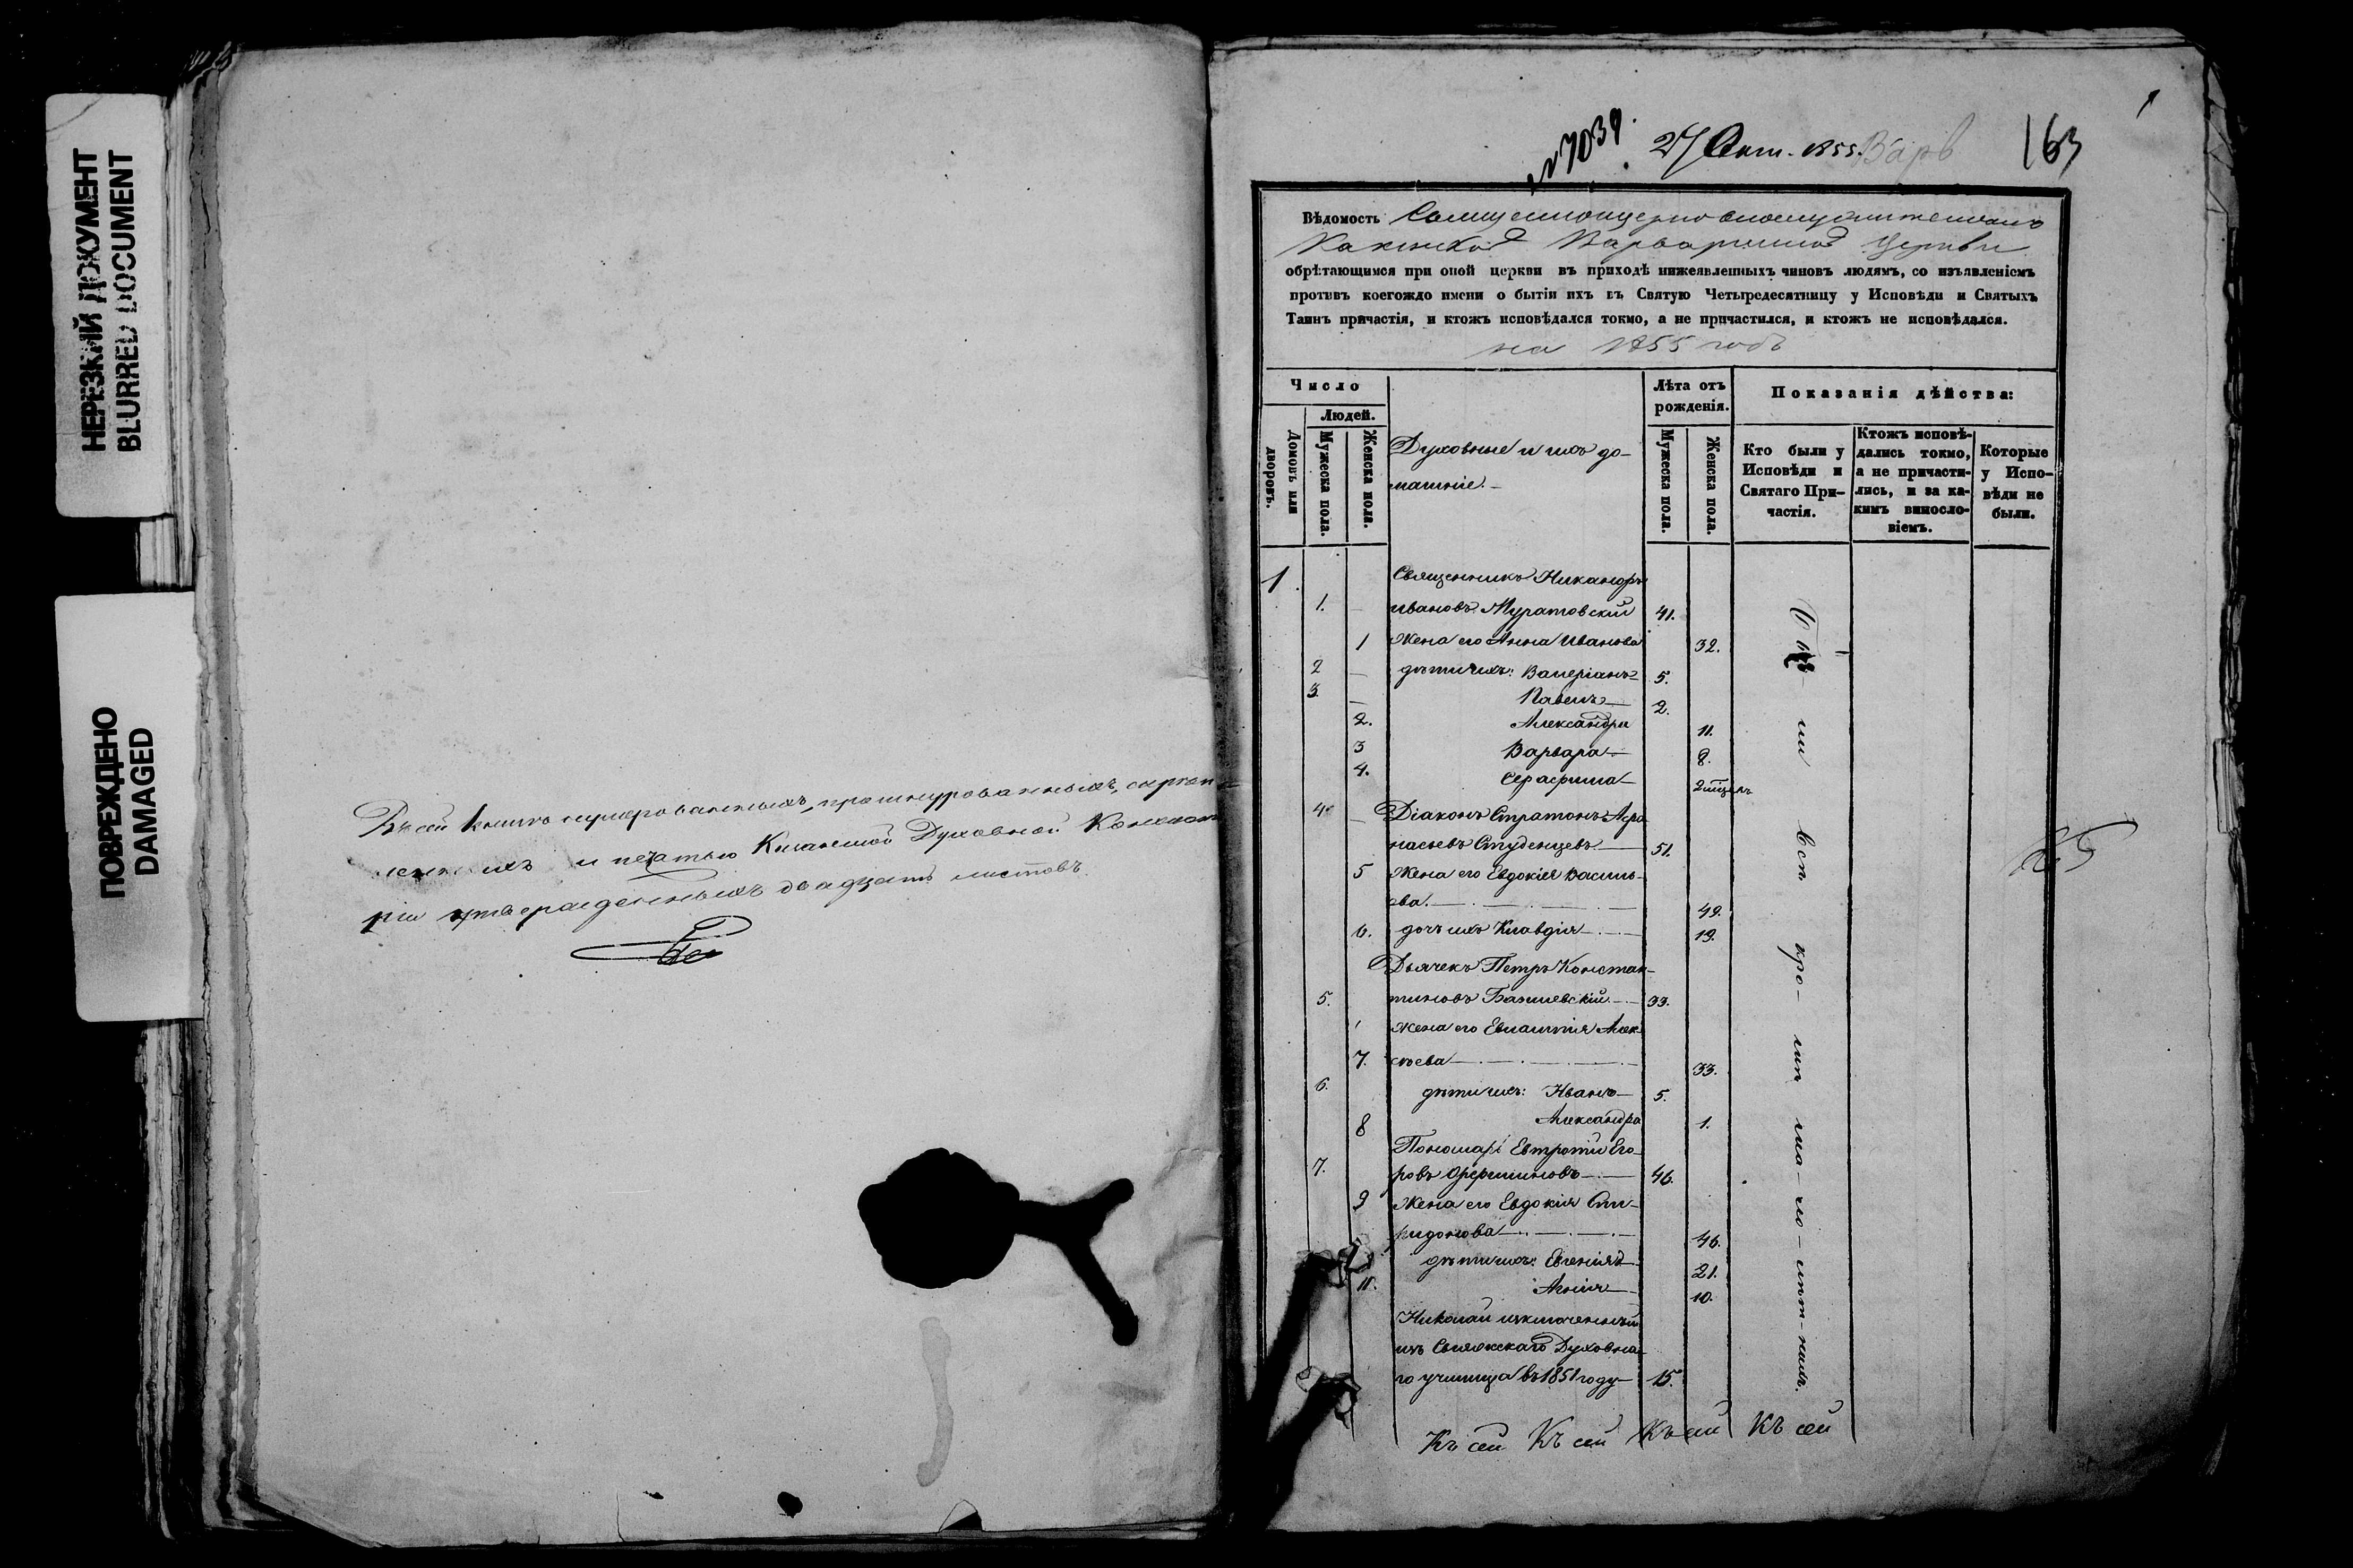 НЕРЕЗКИЙ ДОКУМЕНТ
BLURRED DOCUMENT
ПОВРЕЖДЕНО
DAMAGED
Въ сей книгѣ нумерованныхъ, прошнурованныхъ, скрѣп
ленныхъ и печатью Казанской Духовной Консисто
ріи утвержденныхъ двадцать листовъ.
№ 7039. 27 Окт. 1855. Варв 163
Вѣдомость
Варваринской Церкви
обрѣтающимся при оной церкви въ приходѣ нижеявленныхъ чиновъ людямъ, со изъявленіемъ
противъ коегождо имени о бытіи ихъ въ Святую Четыредесятницу у Исповѣди и Святыхъ
Таинъ причастія, и ктожъ исповѣдался токмо, а не причастился, и ктожъ не исповѣдался.
на 1855 годъ
Число
Людей.
Домовъ или дворовъ.
Мужеска пола.
Женска пола.
Духовные и ихъ до-
машніе.
Лѣта отъ
рожденія.
Мужеска пола.
Женска пола.
Показанія дѣйства:
Кто были у
Исповѣди и
Святаго При-
частія.
Ктожъ исповѣ-
дались токмо,
а не причасти-
лись, и за ка-
кимъ винословіемъ.
Которые
у Испо-
вѣди не
были.
1. Священникъ Никандръ
1. Ивановъ Муратовскій 41.
1 Жена его Анна Иванова 32.
2 дѣти ихъ: Валеріанъ 5.
3. Павелъ 2.
2. Александра 11.
3 Варвара 8.
4. Серафима 2
4. Діаконъ Стратонъ Афа
насьевъ Студенцевъ 51.
5 Жена его Евдокія Василь-
ева. 49.
6. дочь ихъ Клавдія 19.
Дьячекъ Петръ Констан-
5. тиновъ 33.
Жена его Евлампія Алек
7. сѣева 33.
6. дѣти ихъ: Иванъ 5.
8 Александра 1.
Пономарь Евтропій Его
7. ровъ 46.
9 Жена его Евдокія Спи-
ридонова 46.
дѣти ихъ: Евгенія 21.
11. Агнія 10.
Николай исключенный
изъ Свіяжскаго Духовна
го училища въ 1851 году 15.
Бы- ли всѣ
Къ сей Къ сей Къ сей Къ сей